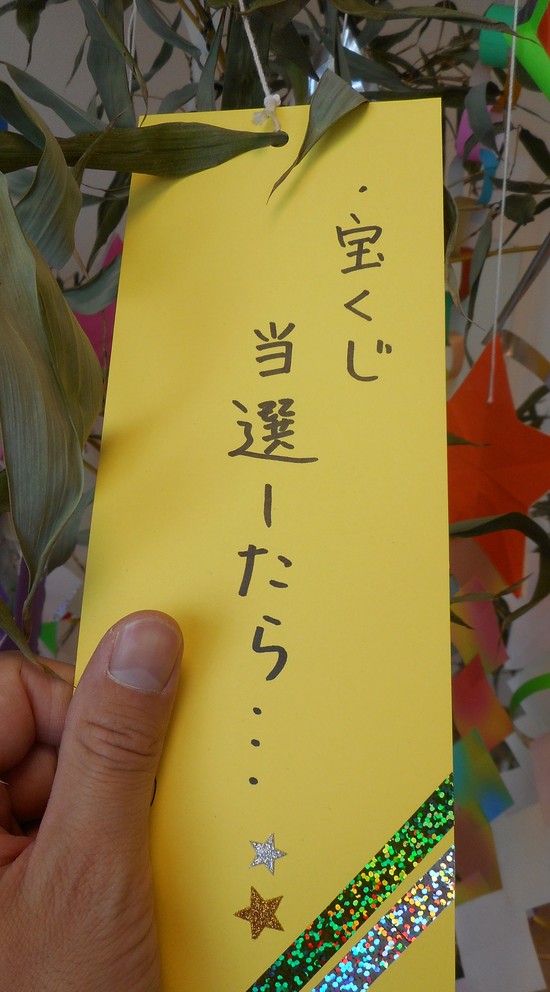 ・宝くじ
当選ーたら…